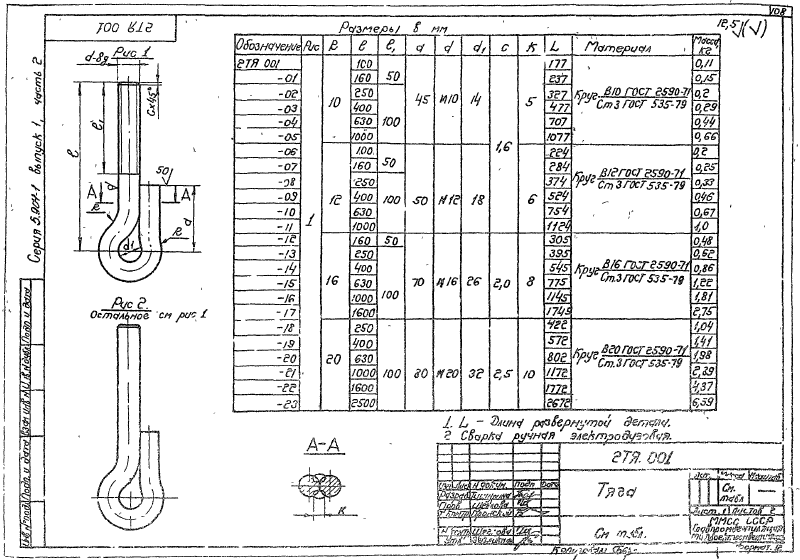 2ТЯ 001
Размеры в мм
12,5
Рис 1
d-8g
c×45°
ℓ₁
ℓ
50
А А
d
R R
а
d1
Рис 2.
Остальное см рис. 1
Серия 5.904-1 выпуск 1, часть 2
Обозначение Рис В ℓ ℓ₁ а d d₁ с К L Материал Масса, кг
2ТЯ 001 1 10 100 50 45 М10 14 1,6 5 177 Круг В10 ГОСТ 2590-71 / Ст3 ГОСТ 535-79 0,11
-01 160 237 0,15
-02 250 100 327 0,2
-03 400 477 0,29
-04 630 707 0,44
-05 1000 1077 0,66
-06 12 100 50 50 М12 18 6 224 Круг В12 ГОСТ 2590-71 / Ст3 ГОСТ 535-79 0,2
-07 160 284 0,25
-08 250 100 374 0,33
-09 400 524 0,46
-10 630 754 0,67
-11 1000 1124 1,0
-12 16 160 50 70 М16 26 2,0 8 305 Круг В16 ГОСТ 2590-71 / Ст3 ГОСТ 535-79 0,48
-13 250 100 395 0,62
-14 400 545 0,86
-15 630 775 1,22
-16 1000 1145 1,81
-17 1600 1745 2,75
-18 20 250 100 80 М20 32 2,5 10 422 Круг В20 ГОСТ 2590-71 / Ст.3 ГОСТ 535-79 1,04
-19 400 572 1,41
-20 630 802 1,98
-21 1000 1172 2,89
-22 1600 1772 4,37
-23 2500 2672 6,59
1. L - Длина развернутой детали.
2 Сварка ручная электродуговая.
А-А
К
2ТЯ. 001
Тяга
См. табл.
См табл.
Лист 1 Листов 2
ММСС СССР
Копировал